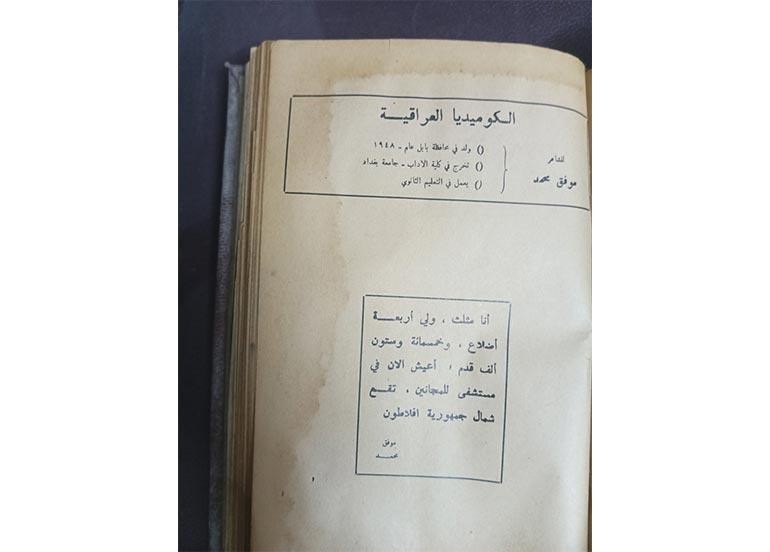 الكوميديا العراقيـــة
للشاعر
موفق محمد
() ولد في محافظة بابل عام ـ ١٩٤٨
() تخرج في كلية الاداب ـ جامعة بغداد
() يعمل في التعليم الثانوي
أنا مثلث ، ولي أربعـــة
أضلاع ، وخمسمائة وستون
ألف قدم ، أعيش الان في
مستشفى للمجانين ، تقـــع
شمال جمهورية افلاطون
موفق
محمـــد